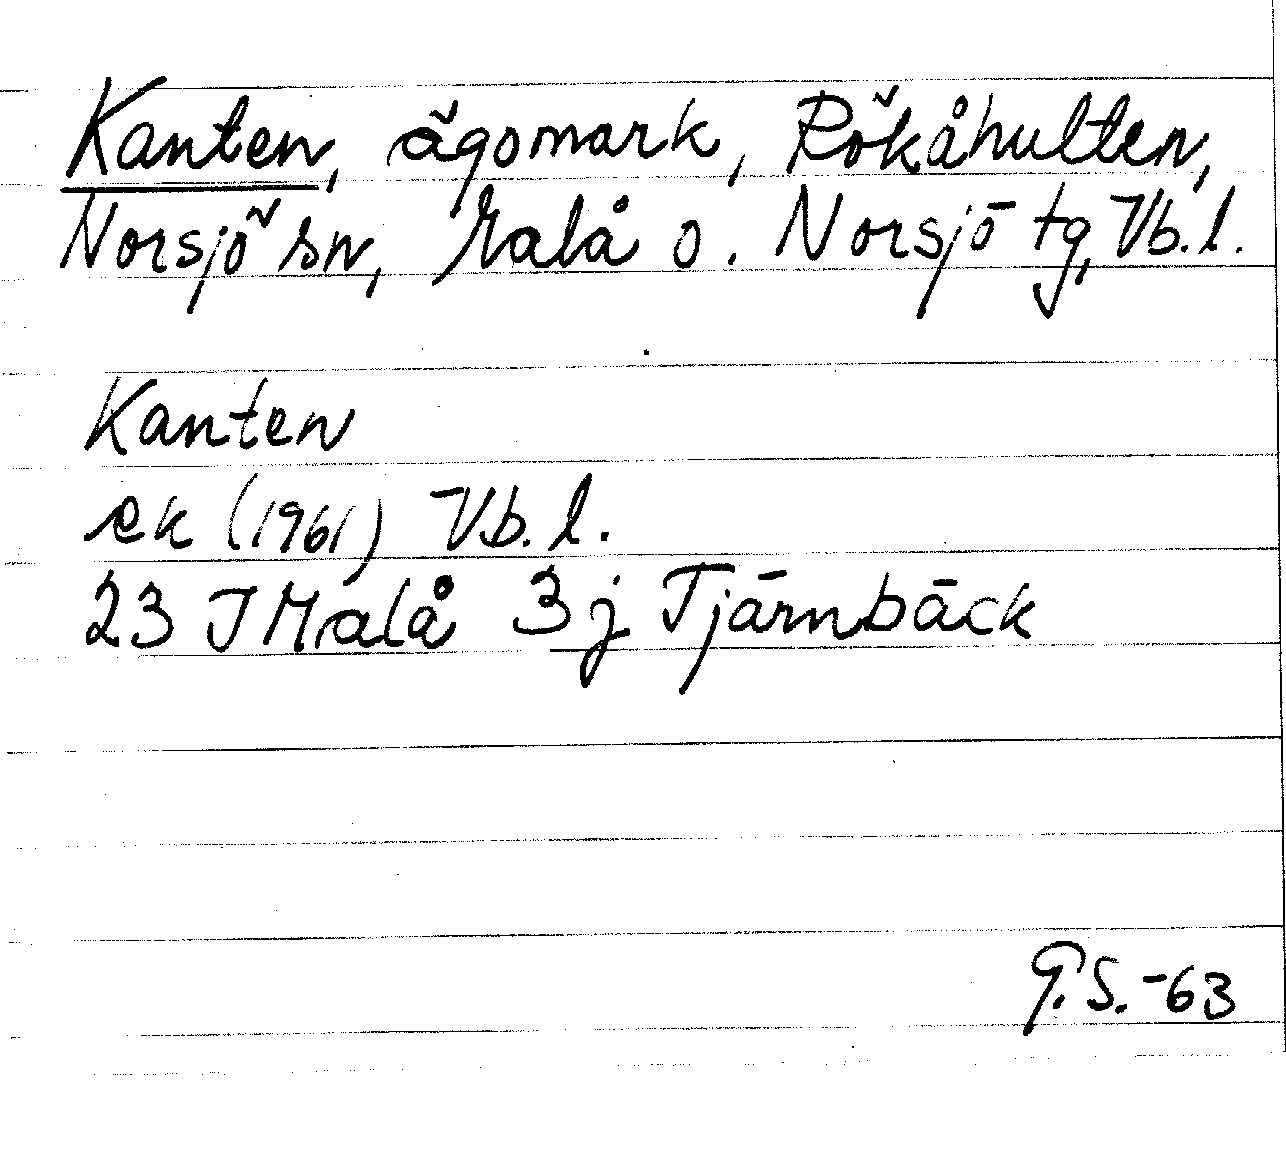 Kanten, ägomark, Rökåhulten,
Norsjö sn, Malå o. Norsjö tg, Vb.l.
Kanten
ek (1961) Vb. l.
23 J Malå 3j Tjärnbäck
G.S.-63